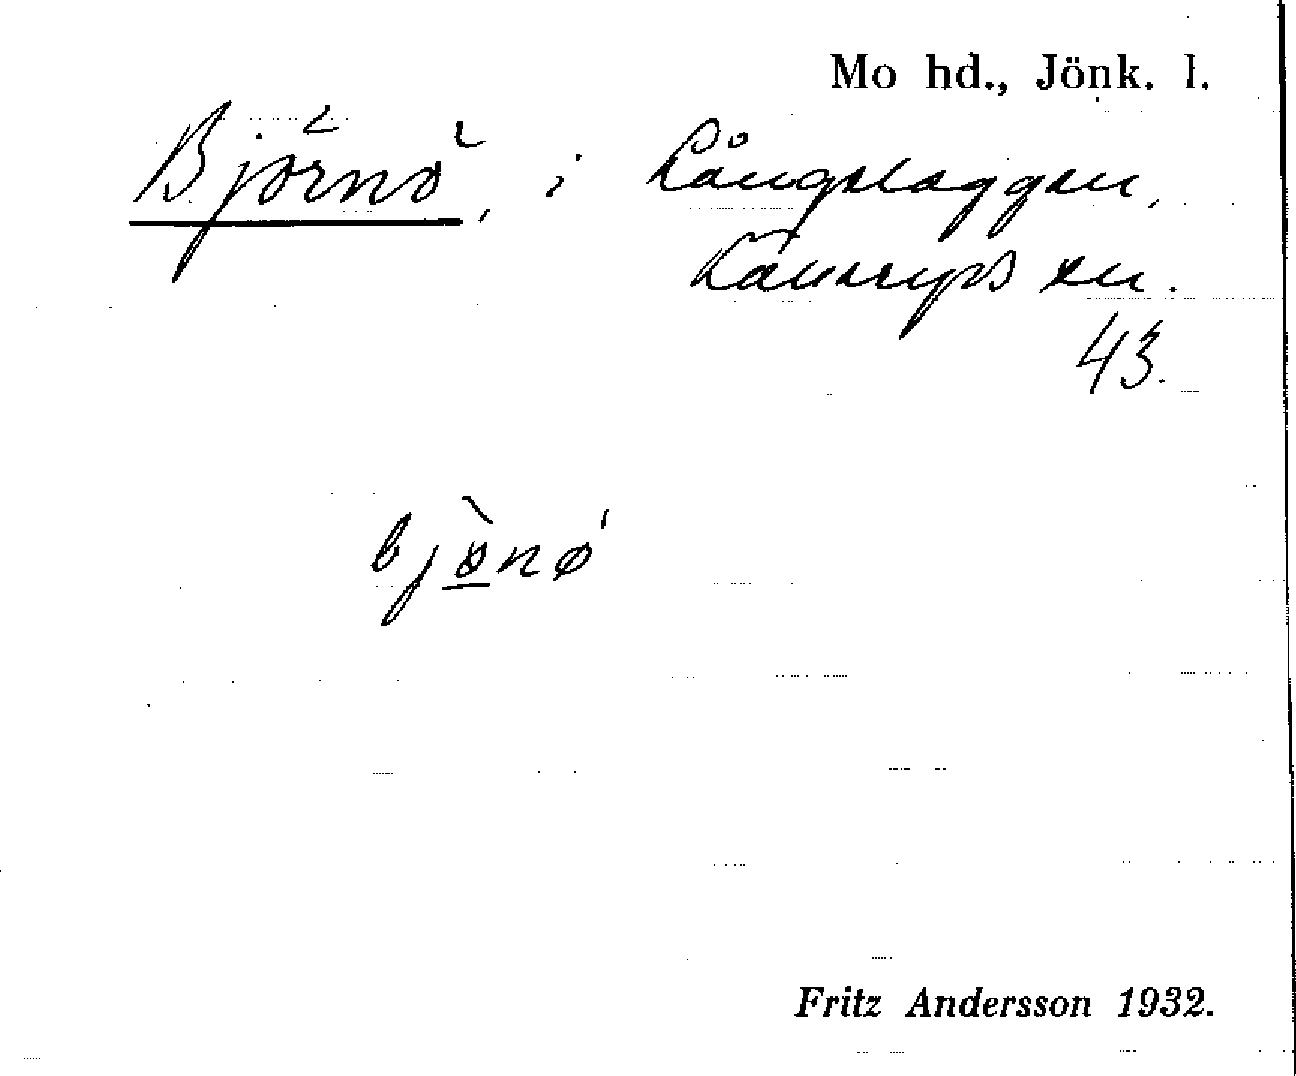 Mo hd., Jönk. l.
Björnö, i Långelaggen,
Lånsryds sn.
43.
bjònǿ
Fritz Andersson 1932.